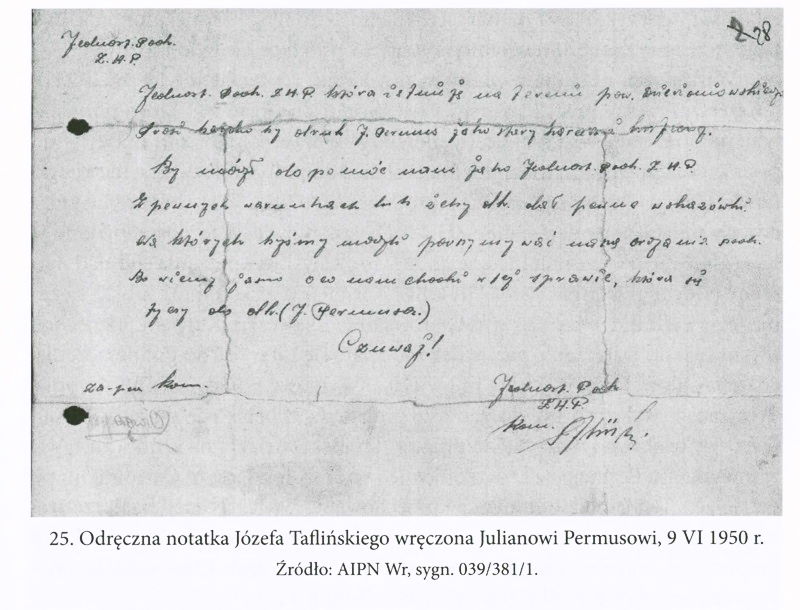 28
Jednost. Poch.
Z.H.P.
Jednost. Poch. Z.H.P. która istnieje na terenie pow.
Prosi by druh J. Permus jako stary harcerz
By mógł dopomóc nam jako Jednost. Poch. Z.H.P.
W pewnych warunkach lub żeby dh. dał pewne wskazówki
Na których byśmy mogli naszą organiz. poch.
Bo wiemy samo o co nam chodzi w tej sprawie, która się
tyczy do dh. (J. Permusa.)
Czuwaj!
za-pca kom.
Jednost. Poch
Z.H.P.
Kom.
25. Odręczna notatka Józefa Taflińskiego wręczona Julianowi Permusowi, 9 VI 1950 r.
Źródło: AIPN Wr, sygn. 039/381/1.